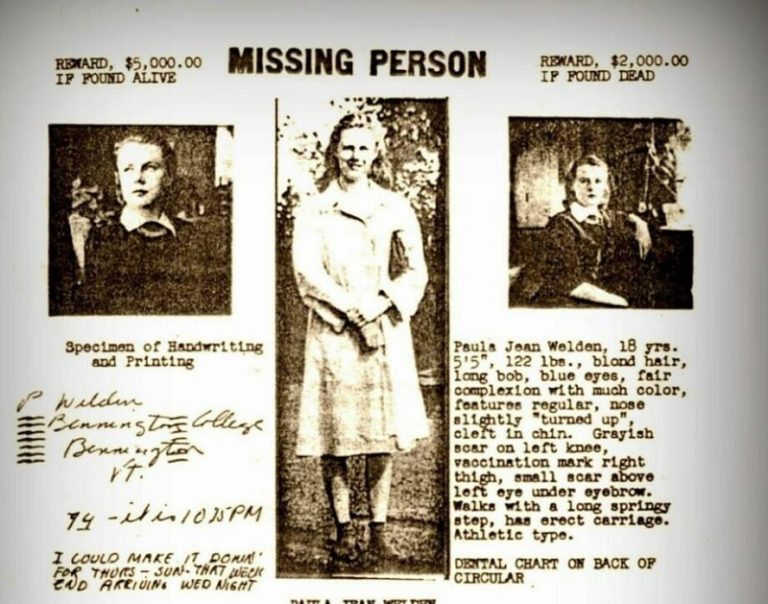 REWARD, $5,000.00
IF FOUND ALIVE
MISSING PERSON
REWARD, $2,000.00
IF FOUND DEAD
Specimen of Handwriting
and Printing
P Welden
Bennington College
Bennington
Vt.
it is 10 25 PM
I COULD MAKE IT DOWN
FOR THURS - SUN - THAT WEEK
END ARRIVING WED NIGHT
Paula Jean Welden, 18 yrs.
5'5", 122 lbs., blond hair,
long bob, blue eyes, fair
complexion with much color,
features regular, nose
slightly "turned up",
cleft in chin. Grayish
scar on left knee,
vaccination mark right
thigh, small scar above
left eye under eyebrow.
Walks with a long springy
step, has erect carriage.
Athletic type.
DENTAL CHART ON BACK OF
CIRCULAR
PAULA JEAN WELDEN